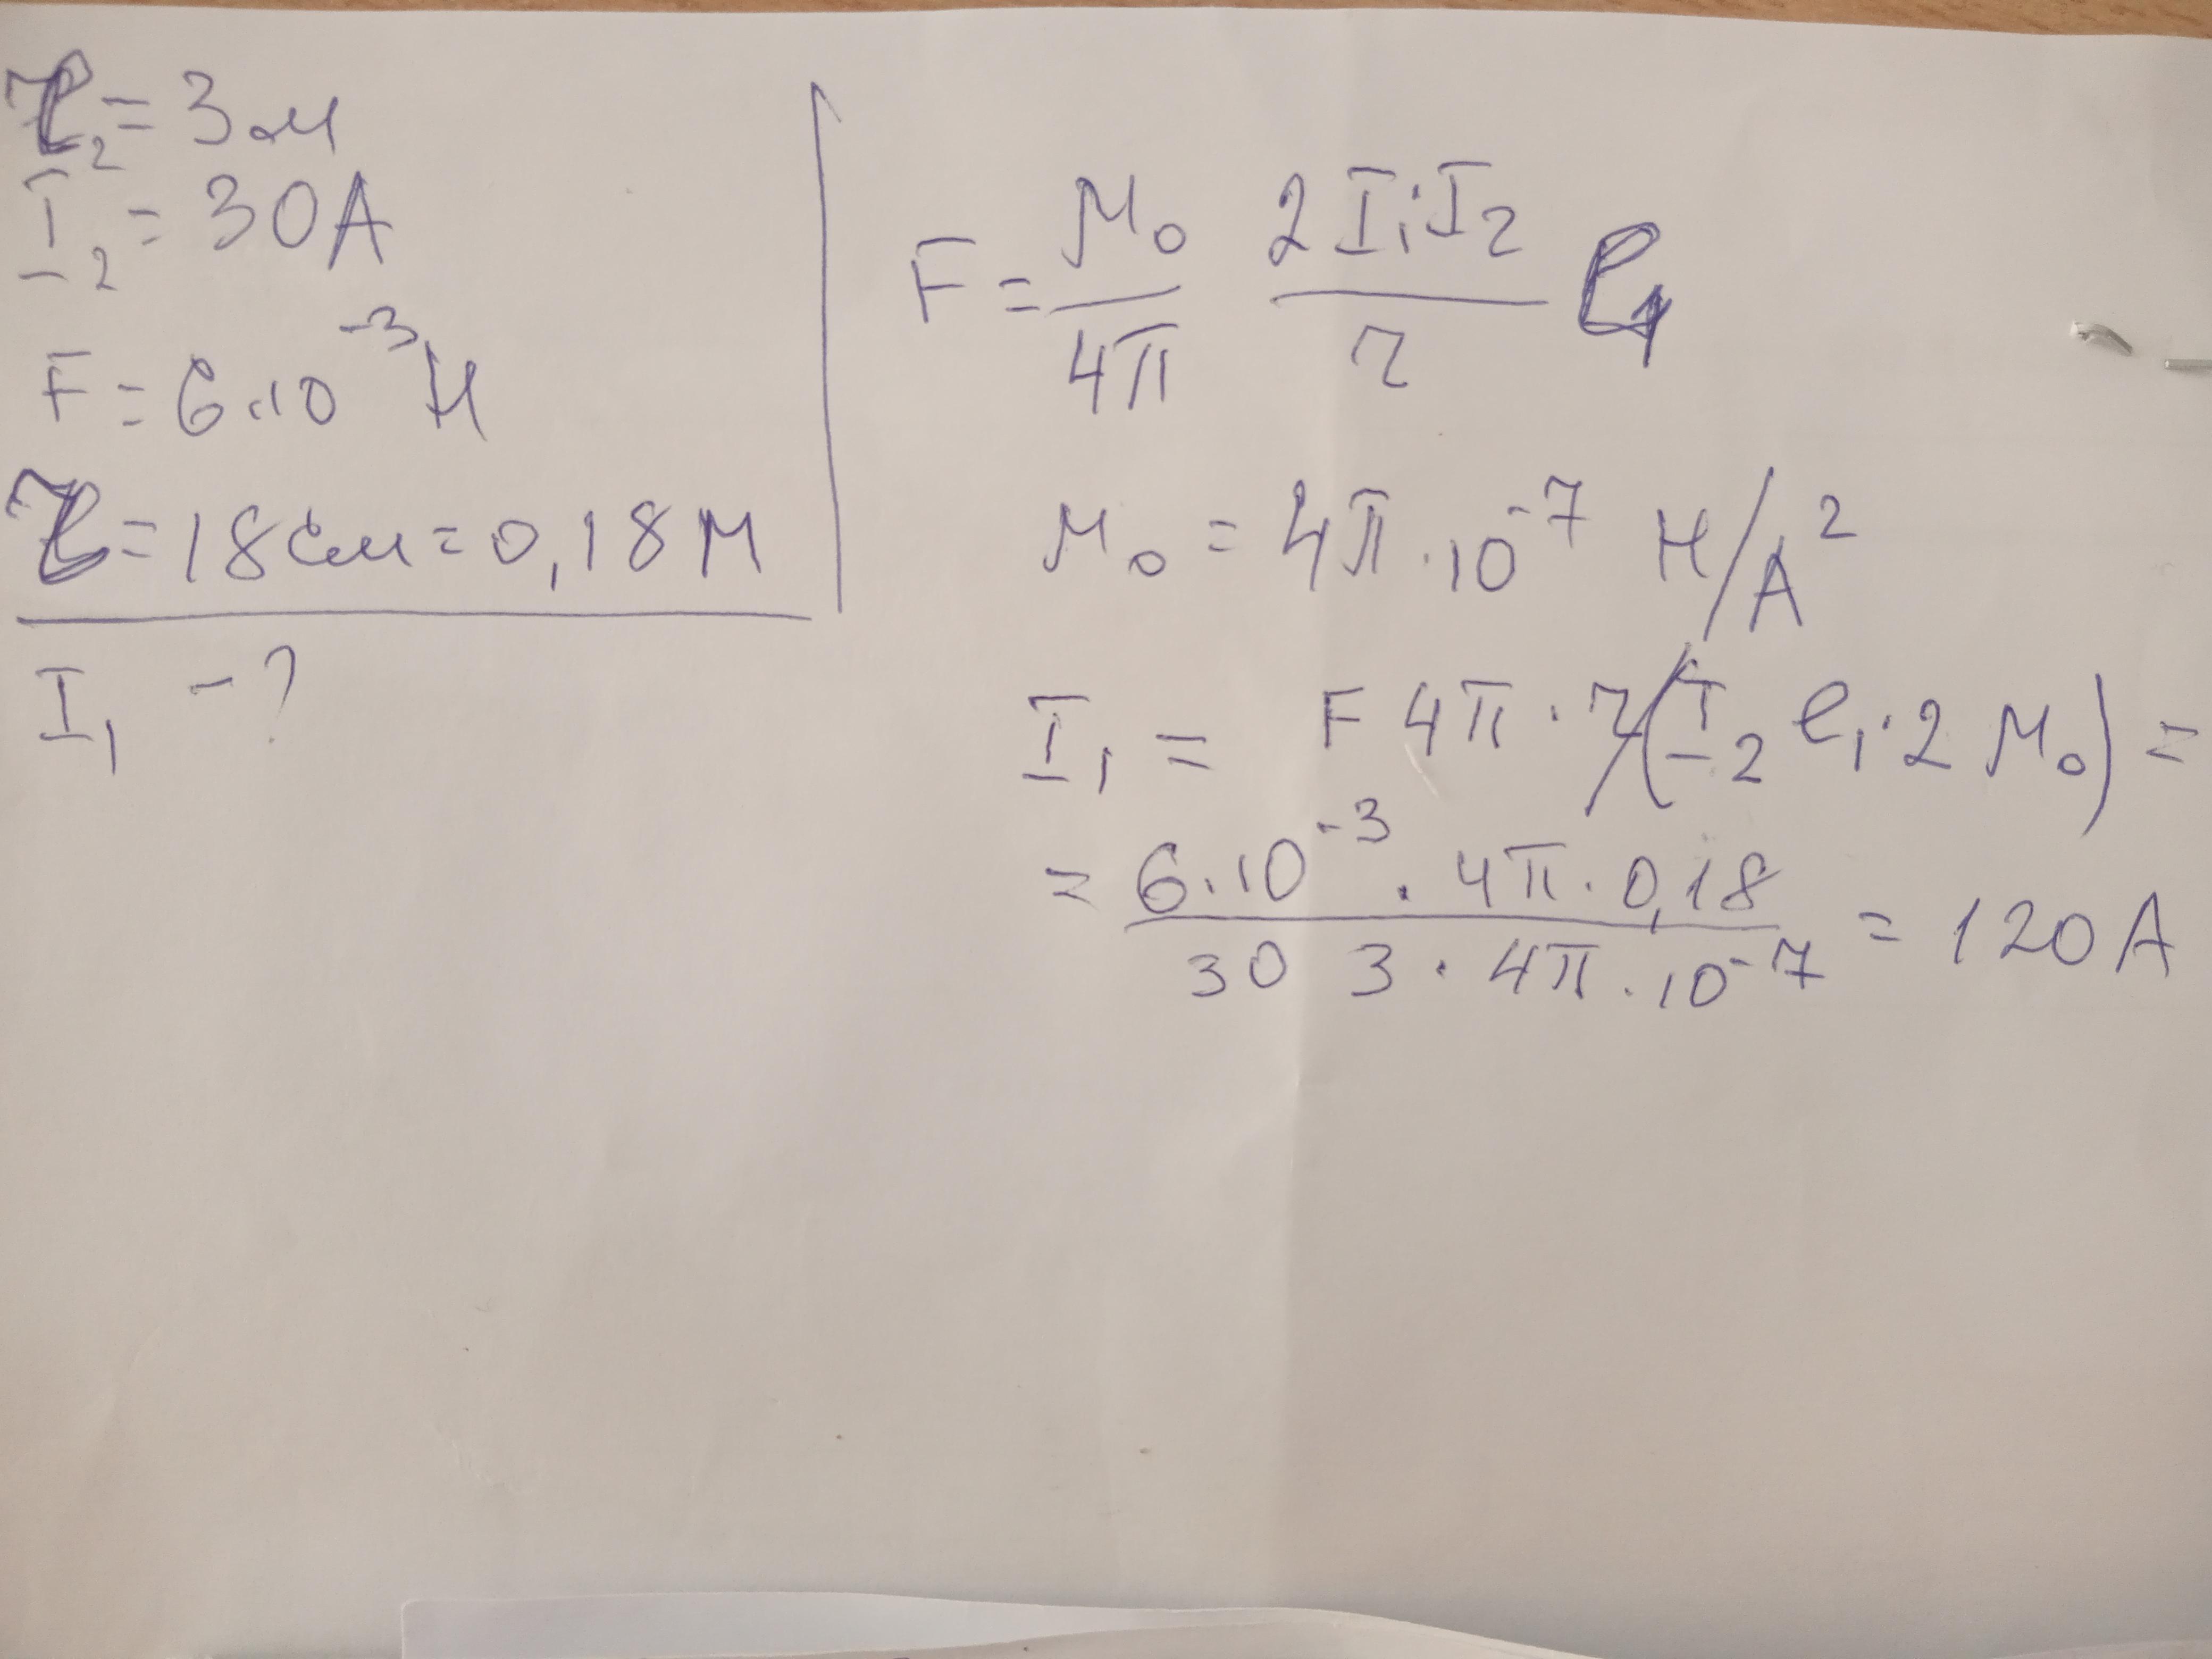 l₂ = 3м
I₂ = 30А
F = 6·10⁻³ Н
r = 18см = 0,18м
I₁ - ?
F = μ₀/4π 2I₁·I₂/r l₁
μ₀ = 4π·10⁻⁷ Н/А²
I₁ = F4π·r/(I₂ l₁·2μ₀) =
= 6·10⁻³·4π·0,18/30 3·4π·10⁻⁷ = 120А